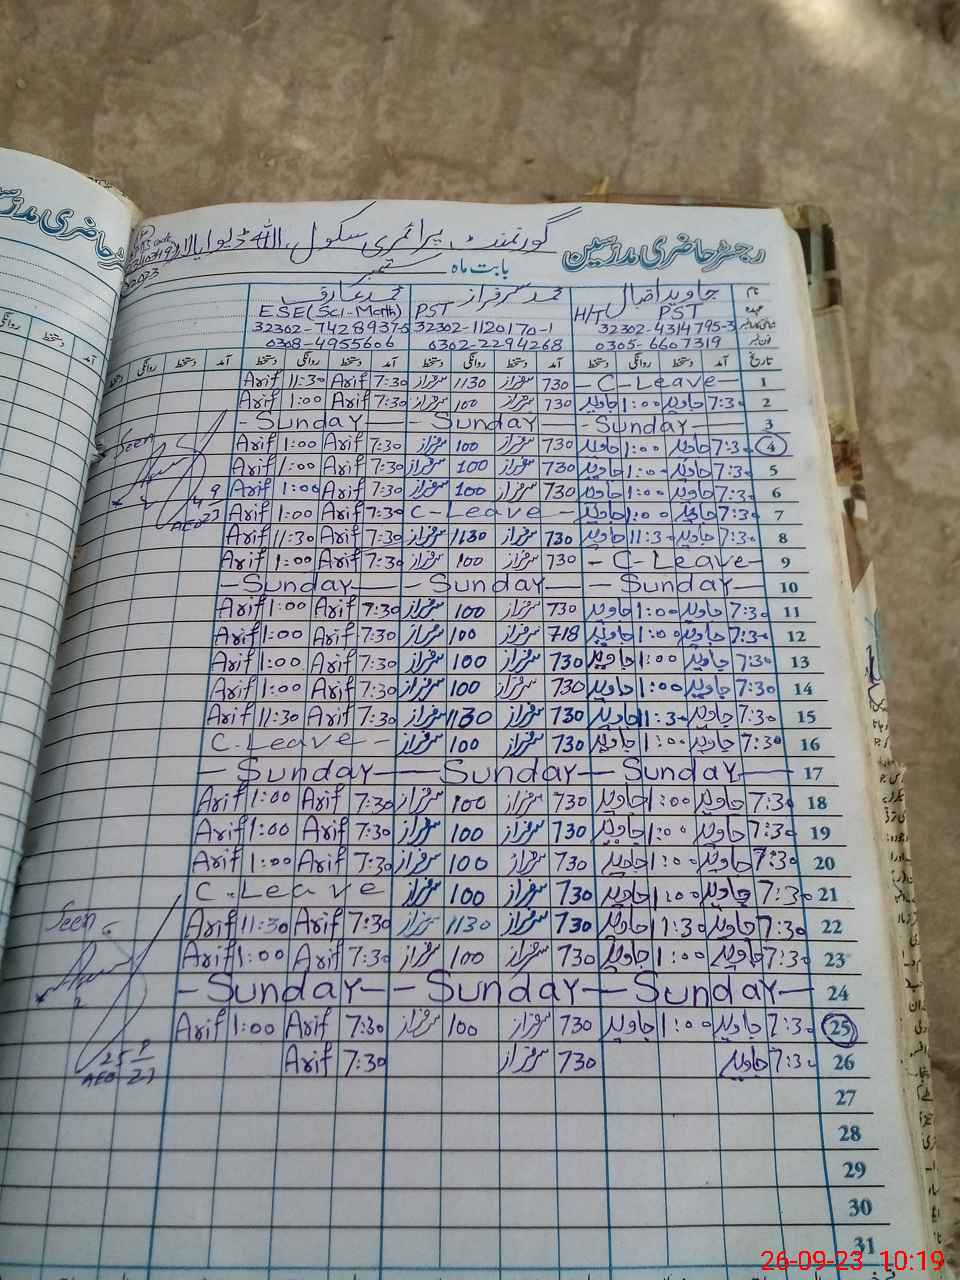 رجسٹر حاضری مدرسین گورنمنٹ پرائمری سکول اللہ ڈیوایا
بابت ماہ ستمبر
نام جاوید اقبال محمد سرفراز محمد عارف
عہدہ PST H/T PST ESE(Sci-Math)
32302-4314795-3 32302-1120170-1 32302-7428937-5
فون نمبر 0305-6607319 0302-2294268 0308-4955606
تاریخ آمد دستخط روانگی دستخط آمد دستخط روانگی دستخط آمد دستخط روانگی دستخط آمد دستخط روانگی دستخط
1 - C-Leave- 730 سرفراز 1130 سرفراز 7:30 Arif 11:30 Arif
2 7:30 جاوید 1:00 جاوید 730 سرفراز 100 سرفراز 7:30 Arif 1:00 Arif
3 - Sunday - - Sunday - - Sunday -
4 7:30 جاوید 1:00 جاوید 730 سرفراز 100 سرفراز 7:30 Arif 1:00 Arif
5 7:30 جاوید 1:00 جاوید 730 سرفراز 100 سرفراز 7:30 Arif 1:00 Arif
6 7:30 جاوید 1:00 جاوید 730 سرفراز 100 سرفراز 7:30 Arif 1:00 Arif
7 7:30 جاوید 1:00 جاوید C-Leave - 7:30 Arif 1:00 Arif
8 7:30 جاوید 11:30 جاوید 730 سرفراز 1130 سرفراز 7:30 Arif 11:30 Arif
9 - C-Leave- 730 سرفراز 100 سرفراز 7:30 Arif 1:00 Arif
10 - Sunday - Sunday - Sunday
11 7:30 جاوید 1:00 جاوید 730 سرفراز 100 سرفراز 7:30 Arif 1:00 Arif
12 7:30 جاوید 1:00 جاوید 718 سرفراز 100 سرفراز 7:30 Arif 1:00 Arif
13 7:30 جاوید 1:00 جاوید 730 سرفراز 100 سرفراز 7:30 Arif 1:00 Arif
14 7:30 جاوید 1:00 جاوید 730 سرفراز 100 سرفراز 7:30 Arif 1:00 Arif
15 7:30 جاوید 11:30 جاوید 730 سرفراز 1130 سرفراز 7:30 Arif 11:30 Arif
16 7:30 جاوید 1:00 جاوید 730 سرفراز 100 سرفراز C-Leave -
17 - Sunday - Sunday - Sunday -
18 7:30 جاوید 1:00 جاوید 730 سرفراز 100 سرفراز 7:30 Arif 1:00 Arif
19 7:30 جاوید 1:00 جاوید 730 سرفراز 100 سرفراز 7:30 Arif 1:00 Arif
20 7:30 جاوید 1:00 جاوید 730 سرفراز 100 سرفراز 7:30 Arif 1:00 Arif
21 7:30 جاوید 1:00 جاوید 730 سرفراز 100 سرفراز C-Leave
22 7:30 جاوید 11:30 جاوید 730 سرفراز 1130 سرفراز 7:30 Arif 11:30 Arif
23 7:30 جاوید 1:00 جاوید 730 سرفراز 100 سرفراز 7:30 Arif 1:00 Arif
24 - Sunday - Sunday - Sunday -
25 7:30 جاوید 1:00 جاوید 730 سرفراز 100 سرفراز 7:30 Arif 1:00 Arif
26 7:30 جاوید 730 سرفراز 7:30 Arif
27
28
29
30
31
Seen
AEO
Seen
AEO
26-09-23 10:19